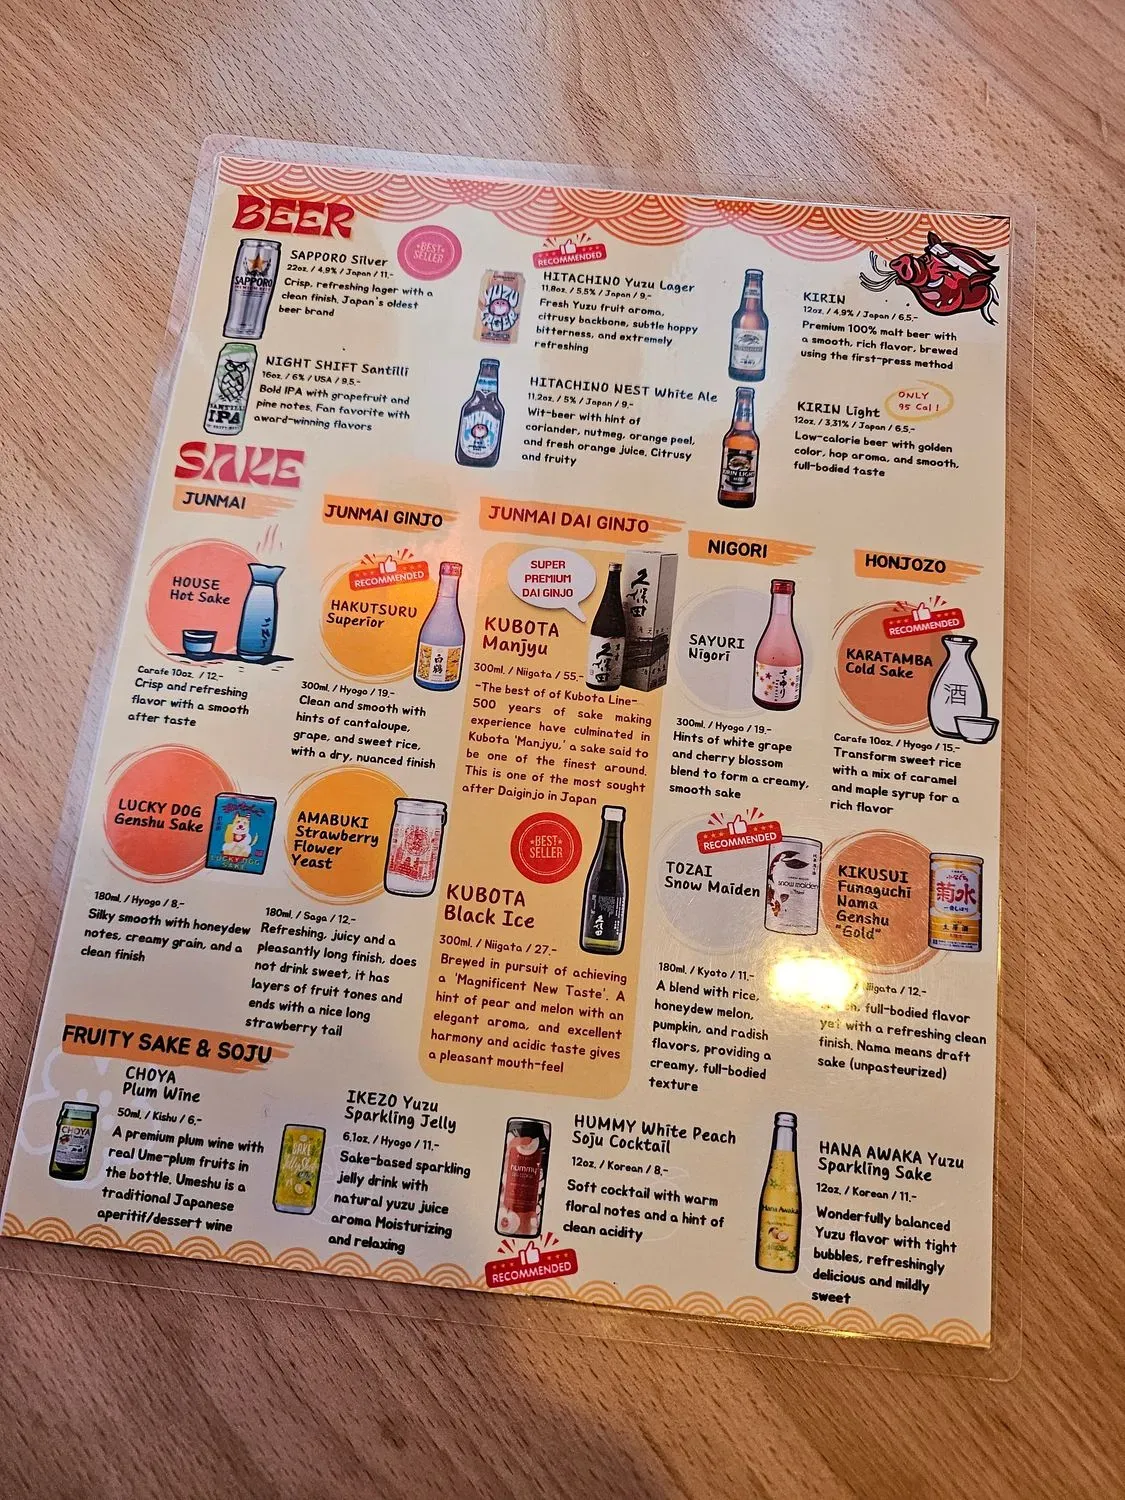 BEER
BEST
SELLER
SAPPORO
SAPPORO Silver
22oz. / 4.9% / Japan / 11.-
Crisp, refreshing lager with a
clean finish, Japan's oldest
beer brand
RECOMMENDED
YUZU
LAGER
HITACHINO Yuzu Lager
11.8oz. / 5.5% / Japan / 9.-
Fresh Yuzu fruit aroma,
citrusy backbone, subtle hoppy
bitterness, and extremely
refreshing
KIRIN
12oz. / 4.9% / Japan / 6.5.-
Premium 100% malt beer with
a smooth, rich flavor, brewed
using the first-press method
SANTILLI
IPA
NIGHT SHIFT Santilli
16oz. / 6% / USA / 9.5.-
Bold IPA with grapefruit and
pine notes. Fan favorite with
award-winning flavors
HITACHINO NEST White Ale
11.2oz. / 5% / Japan / 9.-
Wit-beer with hint of
coriander, nutmeg, orange peel,
and fresh orange juice. Citrusy
and fruity
KIRIN LIGHT
KIRIN Light
ONLY
95 Cal !
12oz. / 3.31% / Japan / 6.5.-
Low-calorie beer with golden
color, hop aroma, and smooth,
full-bodied taste
SAKE
JUNMAI
HOUSE
Hot Sake
Carafe 10oz. / 12.-
Crisp and refreshing
flavor with a smooth
after taste
LUCKY DOG
Genshu Sake
LUCKY DOG
SAKE
180ml. / Hyogo / 8.-
Silky smooth with honeydew
notes, creamy grain, and a
clean finish
JUNMAI GINJO
RECOMMENDED
HAKUTSURU
Superior
白鶴
300ml. / Hyogo / 19.-
Clean and smooth with
hints of cantaloupe,
grape, and sweet rice,
with a dry, nuanced finish
AMABUKI
Strawberry
Flower
Yeast
180ml. / Saga / 12.-
Refreshing, juicy and a
pleasantly long finish, does
not drink sweet, it has
layers of fruit tones and
ends with a nice long
strawberry tail
JUNMAI DAI GINJO
SUPER
PREMIUM
DAI GINJO
久保田
久保田
KUBOTA
Manjyu
300ml. / Niigata / 55.-
-The best of of Kubota Line-
500 years of sake making
experience have culminated in
Kubota 'Manjyu,' a sake said to
be one of the finest around.
This is one of the most sought
after Daiginjo in Japan
BEST
SELLER
久保田
KUBOTA
Black Ice
300ml. / Niigata / 27.-
Brewed in pursuit of achieving
a 'Magnificent New Taste'. A
hint of pear and melon with an
elegant aroma, and excellent
harmony and acidic taste gives
a pleasant mouth-feel
NIGORI
SAYURI
Nigori
さゆり
300ml. / Hyogo / 19.-
Hints of white grape
and cherry blossom
blend to form a creamy,
smooth sake
RECOMMENDED
TOZAI
Snow Maiden
snow maiden
180ml. / Kyoto / 11.-
A blend with rice,
honeydew melon,
pumpkin, and radish
flavors, providing a
creamy, full-bodied
texture
HONJOZO
RECOMMENDED
KARATAMBA
Cold Sake
酒
Carafe 10oz. / Hyogo / 15.-
Transform sweet rice
with a mix of caramel
and maple syrup for a
rich flavor
KIKUSUI
Funaguchi
Nama
Genshu
"Gold"
菊水
/ Niigata / 12.-
full-bodied flavor
yet with a refreshing clean
finish. Nama means draft
sake (unpasteurized)
FRUITY SAKE & SOJU
CHOYA
CHOYA
Plum Wine
50ml. / Kishu / 6.-
A premium plum wine with
real Ume-plum fruits in
the bottle. Umeshu is a
traditional Japanese
aperitif/dessert wine
SAKE
IKEZO Yuzu
Sparkling Jelly
6.1oz. / Hyogo / 11.-
Sake-based sparkling
jelly drink with
natural yuzu juice
aroma Moisturizing
and relaxing
hummy
RECOMMENDED
HUMMY White Peach
Soju Cocktail
12oz. / Korean / 8.-
Soft cocktail with warm
floral notes and a hint of
clean acidity
Hana Awaka
HANA AWAKA Yuzu
Sparkling Sake
12oz. / Korean / 11.-
Wonderfully balanced
Yuzu flavor with tight
bubbles, refreshingly
delicious and mildly
sweet